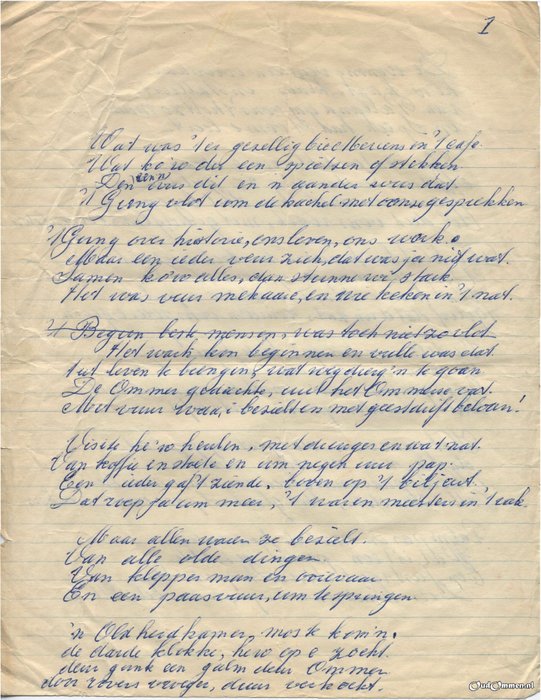 1
Wat was 't er gezellig bie Etberiens in 't cafe
Wat ko'w der een spietsen ofstekken
Den eenn wus dit en 'n aander wus dat
't Gung vlot um de kachel met oonze gesprekken
't Gung over historie, ons leven, ons wark.
Maar een ieder veur zich, dat was ja nig wat.
Samen ko'w alles, dan stunne wi' stark
Het was veur mekaare, en we keken in 't nat.
't Begun beste mensen, was toch niet zo vlot
Het wark kon beginnen en wille was dat
tut leven te brengen, wat weg durg'n te goan
De Ommer gedachte, uut het Ommerse vat
Met vuur waa,i bezielt en met geestdrift beloan!
Visite he'w heulen, met dreuges en wat nat.
Van koffie en stoete en um negen uur pap.
Een ieder gaf't zinde, boven op 't biljart.
Dat roep ja um meer, 't waren meesters in 't vak.
Maar allen waren ze bezielt.
Van alle olde dingen
Van klepperman en voevaar
En een paasvuur, um te springen
'n Oldheidkamer, mos te kom'n.
de darde klokke, he'w op e zocht.
deur gunk een galm deur Ommer
door rovers vroeger, duur verkocht.
OudOmmen.nl